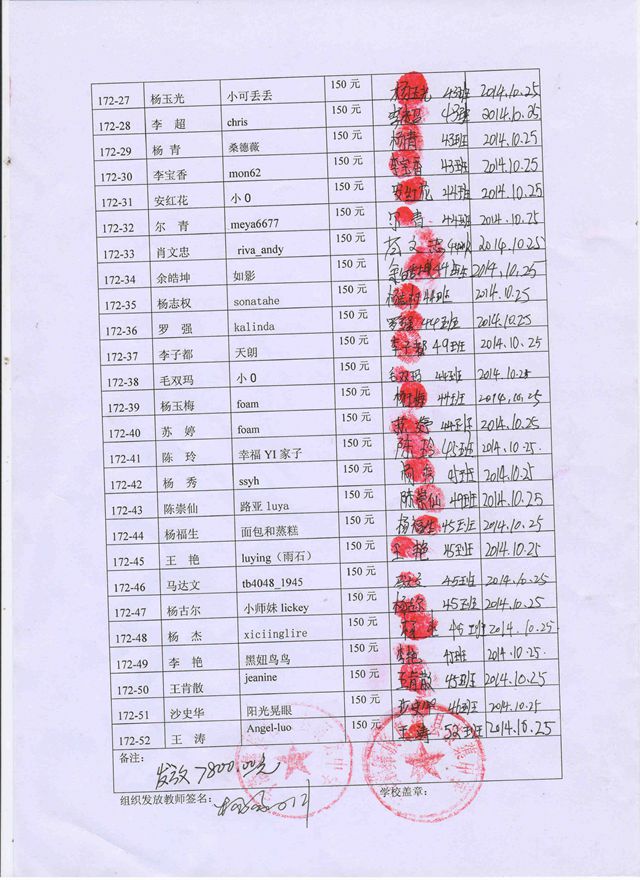 172-27 杨玉光 小可丢丢 150 元 杨玉光 43班 2014.10.25
172-28 李 超 chris 150 元 李超 43班 2014.10.25
172-29 杨 青 桑德薇 150 元 杨青 43班 2014.10.25
172-30 李宝香 mon62 150 元 李宝香 43班 2014.10.25
172-31 安红花 小 0 150 元 安红花 44班 2014.10.25
172-32 尔 青 meya6677 150 元 尔青 44班 2014.10.25
172-33 肖文忠 riva_andy 150 元 2014.10.25
172-34 余皓坤 如影 150 元 余皓坤 44班 2014.10.25
172-35 杨志权 sonatahe 150 元 44班 2014.10.25
172-36 罗 强 kalinda 150 元 罗强 44班 2014.10.25
172-37 李子都 天朗 150 元 李子都 49班 2014.10.25
172-38 毛双玛 小 0 150 元 毛双玛 44班 2014.10.25
172-39 杨玉梅 foam 150 元 杨玉梅 44班 2014.10.25
172-40 苏 婷 foam 150 元 苏婷 44班 2014.10.25
172-41 陈 玲 幸福 YI 家子 150 元 陈玲 45班 2014.10.25
172-42 杨 秀 ssyh 150 元 45班 2014.10.25
172-43 陈崇仙 路亚 luya 150 元 陈崇仙 49班 2014.10.25
172-44 杨福生 面包和蒸糕 150 元 杨福生 45班 2014.10.25
172-45 王 艳 luying（雨石） 150 元 王艳 45班 2014.10.25
172-46 马达文 tb4048_1945 150 元 45班 2014.10.25
172-47 杨古尔 小师妹 lickey 150 元 杨古尔 45班 2014.10.25
172-48 杨 杰 xiciinglire 150 元 班 2014.10.25
172-49 李 艳 黑妞鸟鸟 150 元 李艳 45班 2014.10.25
172-50 王肯散 jeanine 150 元 王肯散 45班 2014.10.25
172-51 沙史华 阳光晃眼 150 元 46班 2014.10.25
172-52 王 涛 Angel-luo 150 元 王涛 52班 2014.10.25
备注：
发放7800.00元
组织发放教师签名： 学校盖章：